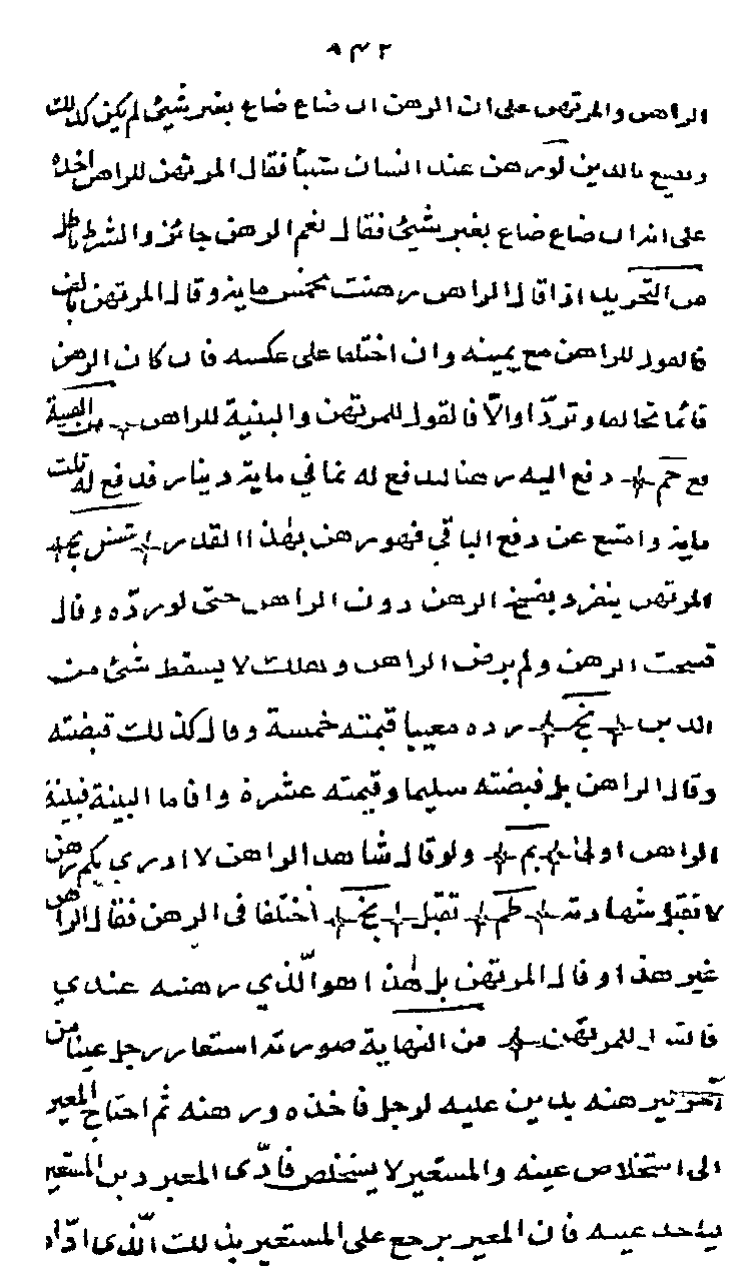 ٩٣٢
الراهن والمرتهن على ان الرهن ان ضاع ضاع بغير شيئ لم يكن كذلك
ويضيع بالدين لو رهن عند انسان شيئا فقال المرتهن للراهن اخذه
على انه ان ضاع ضاع بغير شيئ فقال نعم الرهن جائز والشرط باطل
من التجريد اذا قال الراهن رهنت بخمس ماية وقال المرتهن بالف
فالقول للراهن مع يمينه وان اختلفا على عكسه فان كان الرهن
قائما تحالفا وترادا والا فالقول للمرتهن والبينة للراهن من القنية
فع حم دفع اليه رهنا ليدفع له ثماني ماية دينار فدفع له ثلث
ماية وامتنع عن دفع الباقي فهو رهن بهذا القدر بخ
المرتهن ينفرد بفسخ الرهن دون الراهن حتى لو رده وقال
فسخت الرهن ولم يرض الراهن وهلك لا يسقط شئ من
الدين بخ رده معيبا قيمته خمسة وقال كذلك قبضته
وقال الراهن بل قبضته سليما وقيمته عشرة واقاما البينة فبينة
الراهن اولى بم ولو قال شاهد الراهن لا ادري بكم رهن
لا تقبل شهادته طم تقبل بخ اختلفا في الرهن فقال الراهن
غير هذا وقال المرتهن بل هذا هو الذي رهنه عندي
فالقول للمرتهن من النهاية صورته استعار رجل عينا من
آخر ليرهنه بدين عليه لرجل فاخذه ورهنه ثم احتاج المعير
الى استخلاص عينه والمستعير لا يستخلص فادى المعير دين المستعير
لياخذ عينه فان المعير يرجع على المستعير بذلك الذي اداه